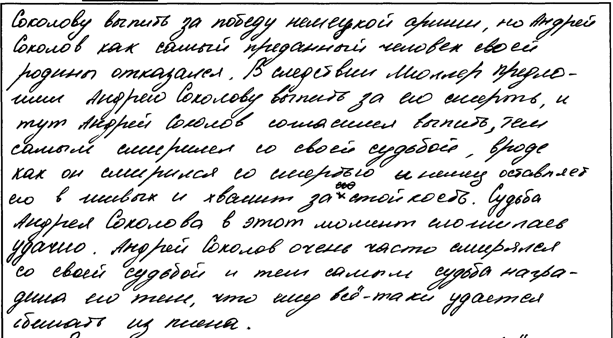 Соколову выпить за победу немецкой армии, но Андрей
Соколов как самый преданный человек своей
родины отказался. В следствии Мюллер предло-
жил Андрею Соколову выпить за его смерть, и
тут Андрей Соколов согласился выпить, тем
самым смирился со своей судьбой, вроде
как он смирился со смертью и немец оставляет
его в живых и хвалит за его стойкость. Судьба
Андрея Соколова в этот момент сложилась
удачно. Андрей Соколов очень часто смирялся
со своей судьбой и тем самым судьба награ-
дила его тем, что ему всё-таки удается
сбежать из плена.